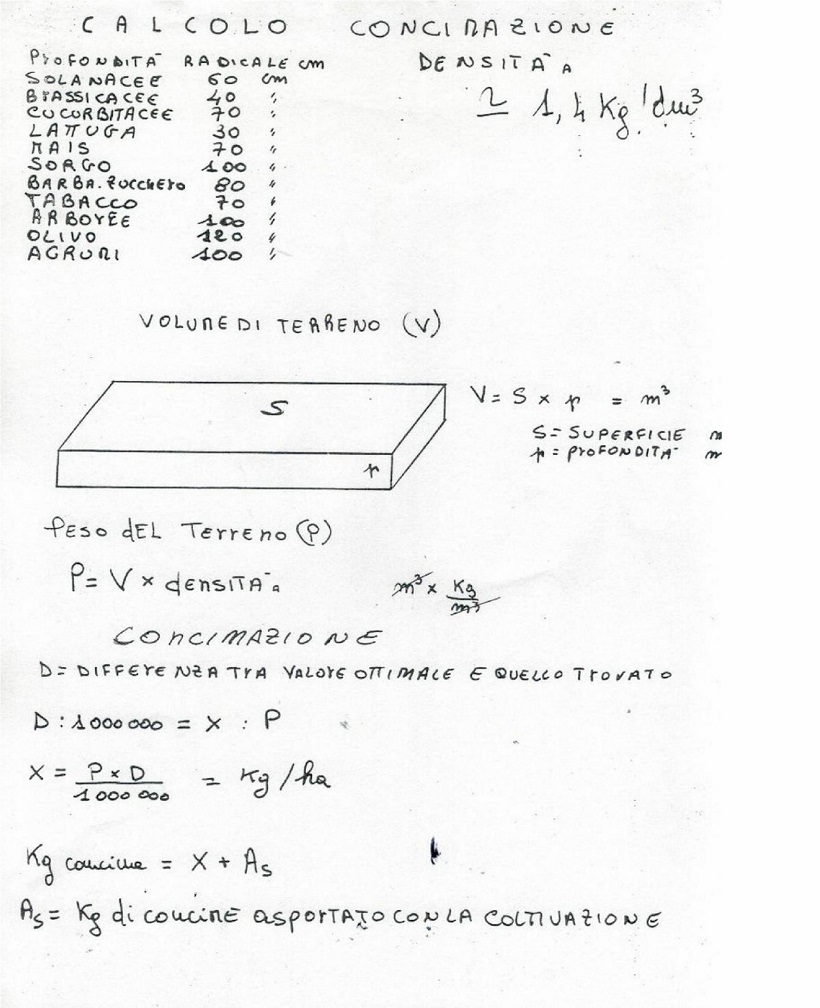 CALCOLO CONCIMAZIONE
PROFONDITÀ RADICALE cm DENSITÀ A
SOLANACEE 60 cm
BRASSICACEE 40 "
≃ 1,4 Kg/dm³
CUCURBITACEE 70 "
LATTUGA 30 "
MAIS 70 "
SORGO 100 "
BARBA.ZUCCHERO 80 "
TABACCO 70 "
ARBOREE 100 "
OLIVO 120 "
AGRUMI 100 "
VOLUME DI TERRENO (V)
S
V = S x p = m³
S = SUPERFICIE m
p = PROFONDITÀ m
p
PESO DEL TERRENO (P)
P = V x DENSITÀ a m³ x Kg/m³
CONCIMAZIONE
D = DIFFERENZA TRA VALORE OTTIMALE E QUELLO TROVATO
D : 1000 000 = X : P
X = P x D / 1 000 000 = Kg/ha
Kg concime = X + As
As = Kg di concime asportato con la coltivazione